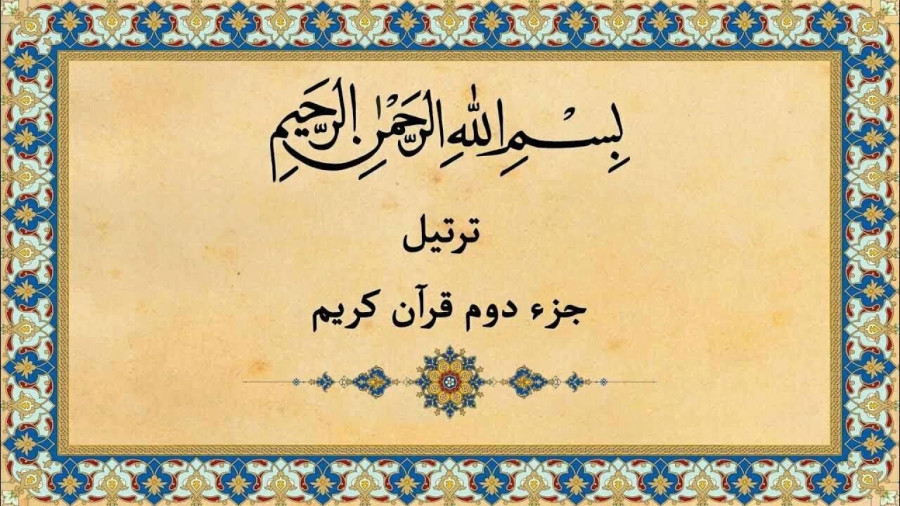 بِسْمِ اللهِ الرَّحْمٰنِ الرَّحِيمِ
ترتیل
جزء دوم قرآن کریم